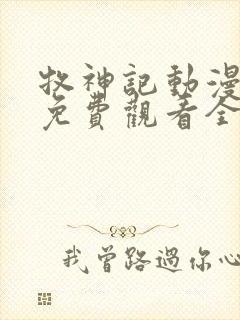 牧神記動漫
免費觀看全
我曾路過你心